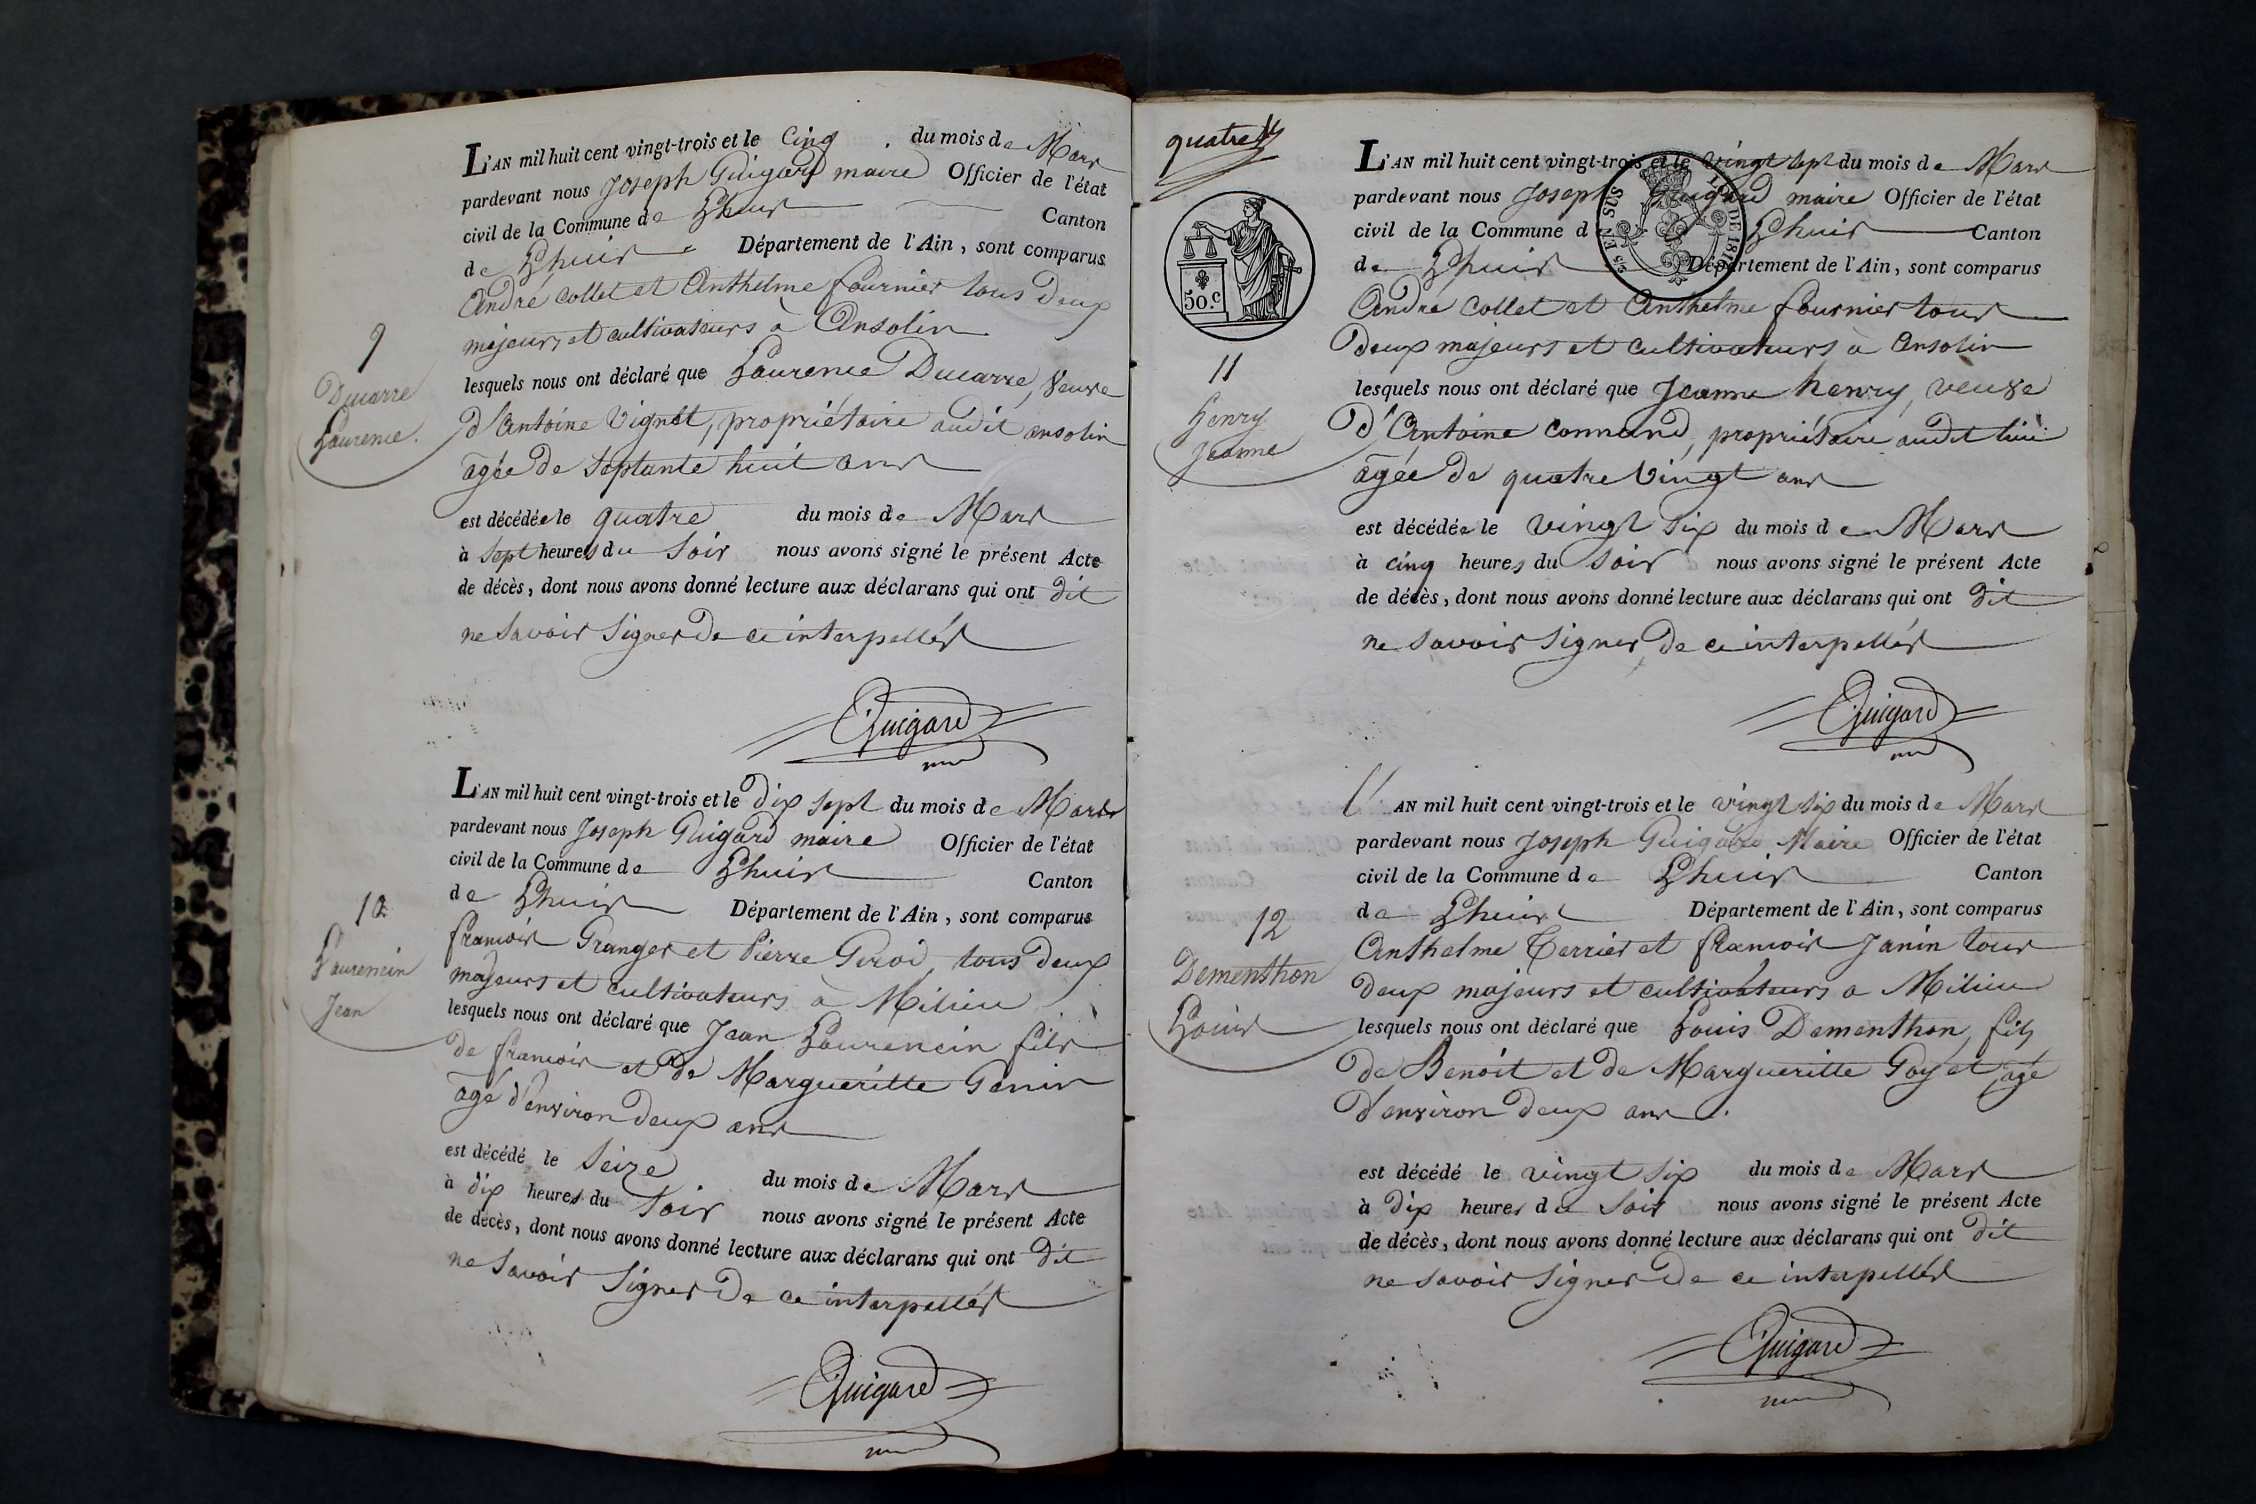 L'AN mil huit cent vingt-trois et le Cinq du mois de Mars
pardevant nous Joseph Guigard maire Officier de l'état
civil de la Commune de Lhuis Canton
de Lhuis Département de l'Ain, sont comparus
André Collet et Anthelme fournier tous deux
majeurs et cultivateurs à Ansolin
9
Ducarre
Laurence.
lesquels nous ont déclaré que Laurence Ducarre, veuve
d'Antoine Vignet, propriétaire audit ansolin
agée de septante huit ans
est décédée le quatre du mois de Mars
à sept heures du soir nous avons signé le présent Acte
de décès, dont nous avons donné lecture aux déclarans qui ont dit
ne savoir signer de ce interpellés
Guigard
L'AN mil huit cent vingt-trois et le dix sept du mois de Mars
pardevant nous Joseph Guigard maire Officier de l'état
civil de la Commune de Lhuis Canton
de Lhuis Département de l'Ain, sont comparus
10
Laurencin
Jean
francois Granger et Pierre Girod, tous deux
majeurs et cultivateurs à Milieu
lesquels nous ont déclaré que Jean Laurencin fils
de francois et de Margueritte Genin
agé d'environ deux ans
est décédé le seize du mois de Mars
à dix heures du soir nous avons signé le présent Acte
de décès, dont nous avons donné lecture aux déclarans qui ont dit
ne savoir signer de ce interpellés
Guigard
quatre
50.c
LOI DE 1816
EN SUS
L'AN mil huit cent vingt-trois et le vingt sept du mois de Mars
pardevant nous Joseph Guigard maire Officier de l'état
civil de la Commune d Lhuis Canton
de Lhuis Département de l'Ain, sont comparus
André Collet et Anthelme fournier tous
deux majeurs et cultivateurs à Ansolin
11
henry
Jeanne
lesquels nous ont déclaré que Jeanne henry, veuve
d'Antoine Connand, propriétaire audit lieu
agée de quatre vingt ans
est décédée le vingt six du mois de Mars
à cinq heures du soir nous avons signé le présent Acte
de décès, dont nous avons donné lecture aux déclarans qui ont dit
ne savoir signer de ce interpellés
Guigard
L'AN mil huit cent vingt-trois et le vingt six du mois de Mars
pardevant nous Joseph Guigard Maire Officier de l'état
civil de la Commune de Lhuis Canton
de Lhuis Département de l'Ain, sont comparus
12
Dementhon
Louis
Anthelme Terrier et francois Janin tous
deux majeurs et cultivateurs a Milieu
lesquels nous ont déclaré que Louis Dementhon, fils
de Benoit et de Margueritte Goyet, agé
d'environ deux ans.
est décédé le vingt six du mois de Mars
à dix heures du soir nous avons signé le présent Acte
de décès, dont nous avons donné lecture aux déclarans qui ont dit
ne savoir signer de ce interpellés
Guigard